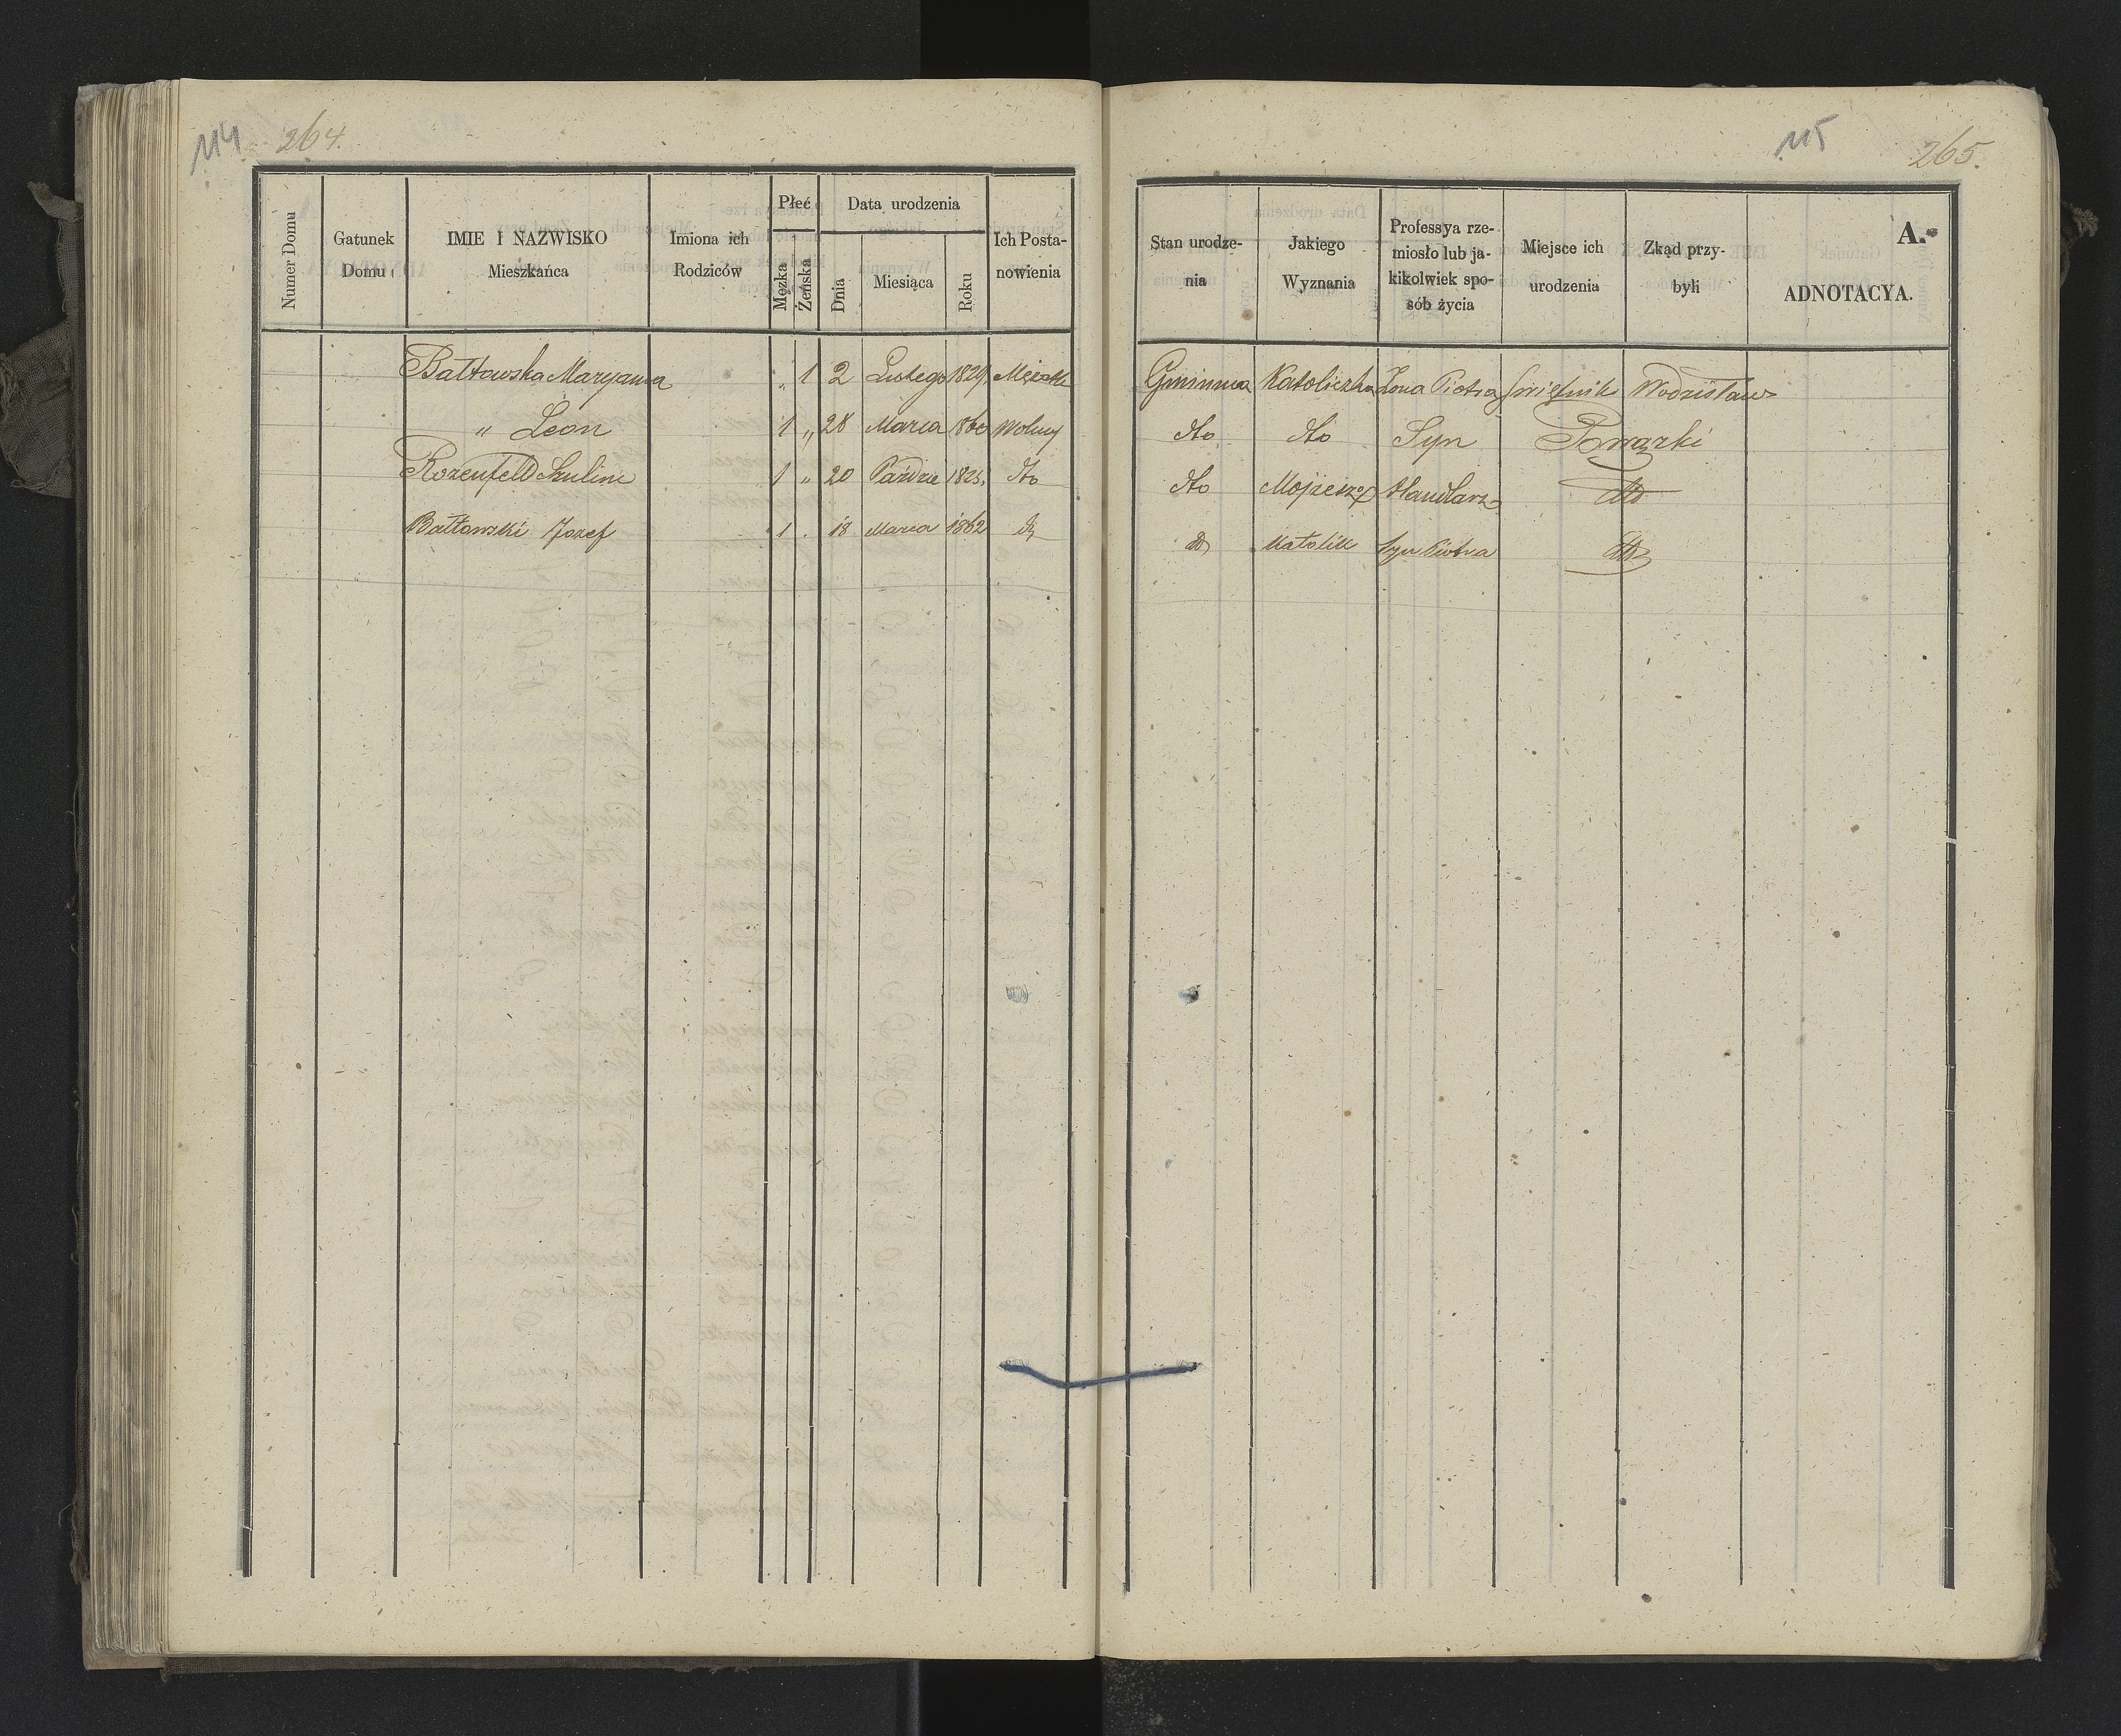 114 264.
Numer Domu
Gatunek Domu
IMIE I NAZWISKO Mieszkańca
Imiona ich Rodziców
Płeć
Męzka
Żeńska
Data urodzenia
Dnia
Miesiąca
Roku
Ich Posta-
nowienia
Bałtowska Maryanna „ 1 2 Lutego 1829 Mężatka
„ Leon 1 „ 28 Marca 1860 Wolny
Rozenfeld Szulim 1 „ 20 Paździe 1825. dto
Bałtowski Jozef 1 . 18 Marca 1862 dto
115 265.
Stan urodze-
nia
Jakiego
Wyznania
Professya rze-
miosło lub ja-
kikolwiek spo-
sób życia
Miejsce ich
urodzenia
Zkąd przy-
byli
A.
ADNOTACYA.
Gminna Katoliczka Żona Piotra Świętnik Wodzisław
dto dto Syn Powązki
dto Mojżesz Handlarz dto
dto Katolik Syn Piotra dto